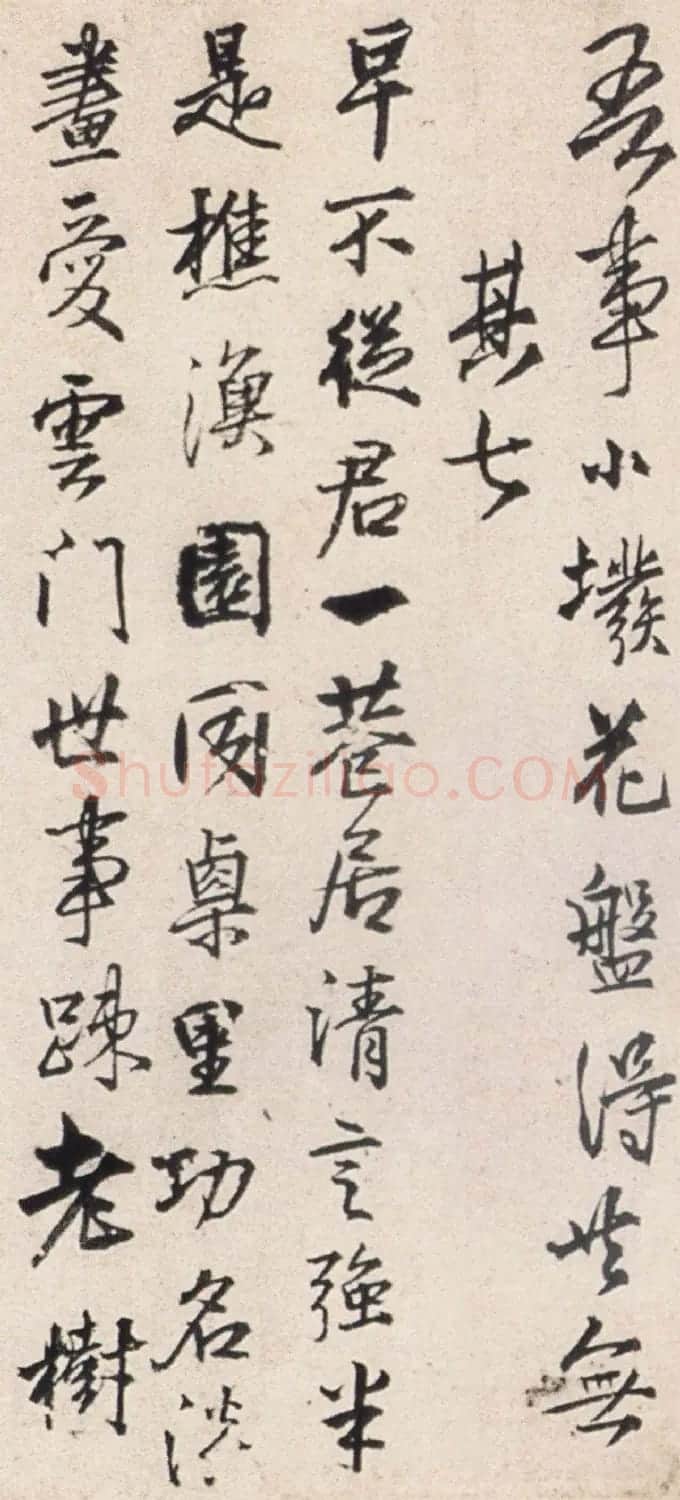 吾事小墢花盤得無
其七
早不從君一巷居清言強半
是樵漁園因栗里功名淡
畫愛雲門世事踈老樹
Shufaziliao.COM